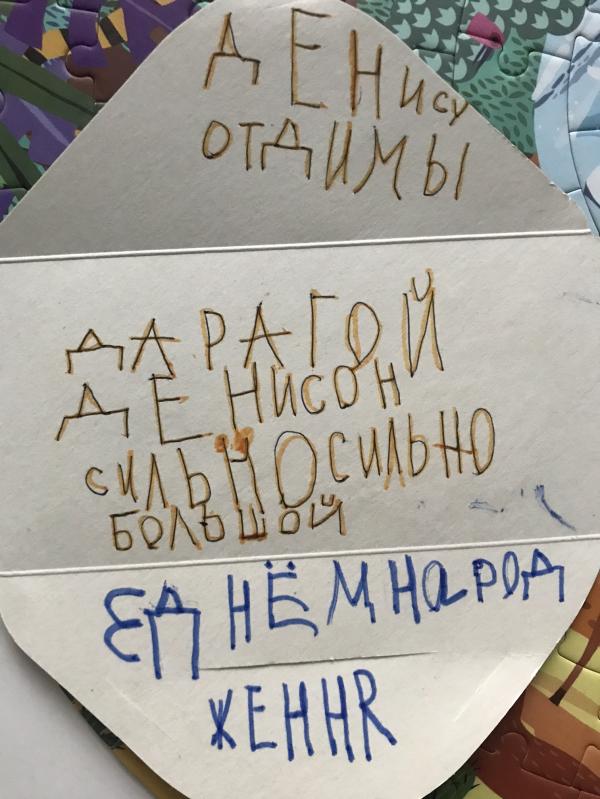 ДЕНису
ОТДИМЫ
ДАРАГОЙ
ДЕНИСОН
СИЛЬНОСИЛЬНО
БОЛЬШОЙ
ЕД НЁМ НаРОД
ЖЕННЯ